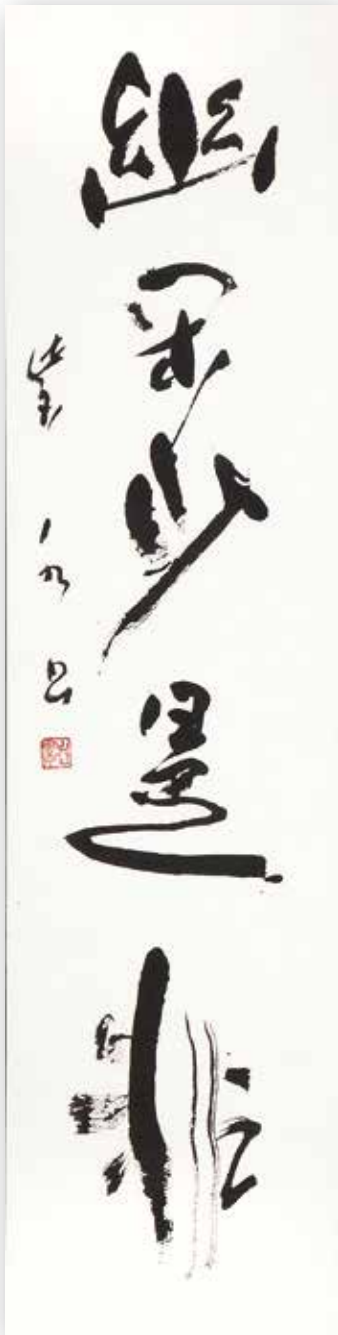 幽閑少是非